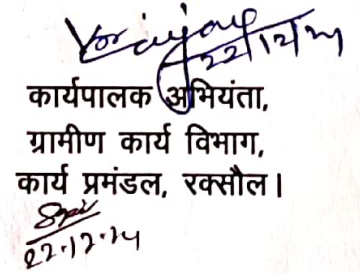 22/12/24
कार्यपालक अभियंता,
ग्रामीण कार्य विभाग,
कार्य प्रमंडल, रक्सौल।
22.12.24